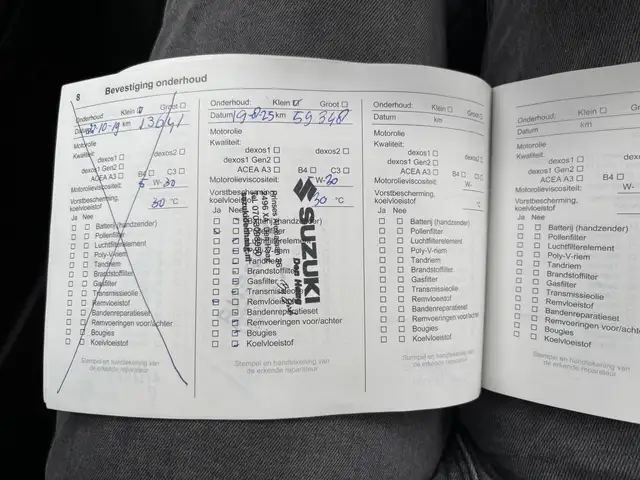 8 Bevestiging onderhoud
Onderhoud: Klein ☑ Groot ☐
Datum 22-10-19 km 13641
Motorolie
Kwaliteit:
dexos1 ☐ dexos2 ☐
dexos1 Gen2 ☐
ACEA A3 ☐ B4 ☐ C3 ☐
Motorolieviscositeit: 5 W-30
Vorstbescherming,
koelvloeistof 30 °C
Ja Nee
☐ ☐ Batterij (handzender)
☐ ☐ Pollenfilter
☐ ☐ Luchtfilterelement
☐ ☐ Poly-V-riem
☐ ☐ Tandriem
☐ ☐ Brandstoffilter
☐ ☐ Gasfilter
☐ ☐ Transmissieolie
☐ ☐ Remvloeistof
☐ ☐ Bandenreparatieset
☐ ☐ Remvoeringen voor/achter
☐ ☐ Bougies
☐ ☐ Koelvloeistof
Stempel en handtekening van
de erkende reparateur
Onderhoud: Klein ☑ Groot ☐
Datum 19-8-25 km 59.348
Motorolie
Kwaliteit:
dexos1 ☐ dexos2 ☐
dexos1 Gen2 ☐
ACEA A3 ☐ B4 ☐ C3 ☐
Motorolieviscositeit: 5 W-30
Vorstbescherming,
koelvloeistof 30 °C
Ja Nee
Batterij (handzender)
Pollenfilter
Luchtfilterelement
Poly-V-riem
Tandriem
Brandstoffilter
Gasfilter
Transmissieolie
Remvloeistof
Bandenreparatieset
Remvoeringen voor/achter
Bougies
Koelvloeistof
SUZUKI
Den Haag
Stempel en handtekening van
de erkende reparateur
Onderhoud: Klein ☐ Groot ☐
Datum km
Motorolie
Kwaliteit:
dexos1 ☐ dexos2 ☐
dexos1 Gen2 ☐
ACEA A3 ☐ B4 ☐ C3 ☐
Motorolieviscositeit: W-
Vorstbescherming,
koelvloeistof °C
Ja Nee
☐ ☐ Batterij (handzender)
☐ ☐ Pollenfilter
☐ ☐ Luchtfilterelement
☐ ☐ Poly-V-riem
☐ ☐ Tandriem
☐ ☐ Brandstoffilter
☐ ☐ Gasfilter
☐ ☐ Transmissieolie
☐ ☐ Remvloeistof
☐ ☐ Bandenreparatieset
☐ ☐ Remvoeringen voor/achter
☐ ☐ Bougies
☐ ☐ Koelvloeistof
Stempel en handtekening van
de erkende reparateur
Onderhoud: Klein
Datum km
Motorolie
Kwaliteit:
dexos1 ☐
dexos1 Gen2 ☐
ACEA A3 ☐
Motorolieviscositeit:
Vorstbescherming,
koelvloeistof
Ja Nee
☐ ☐ Batterij (handzender)
☐ ☐ Pollenfilter
☐ ☐ Luchtfilterelement
☐ ☐ Poly-V-riem
☐ ☐ Tandriem
☐ ☐ Brandstoffilter
☐ ☐ Gasfilter
☐ ☐ Transmissieolie
☐ ☐ Remvloeistof
☐ ☐ Bandenreparatieset
☐ ☐ Remvoeringen voor/acht
☐ ☐ Bougies
☐ ☐ Koelvloeistof
Stempel en handtekening
de erkende reparateur